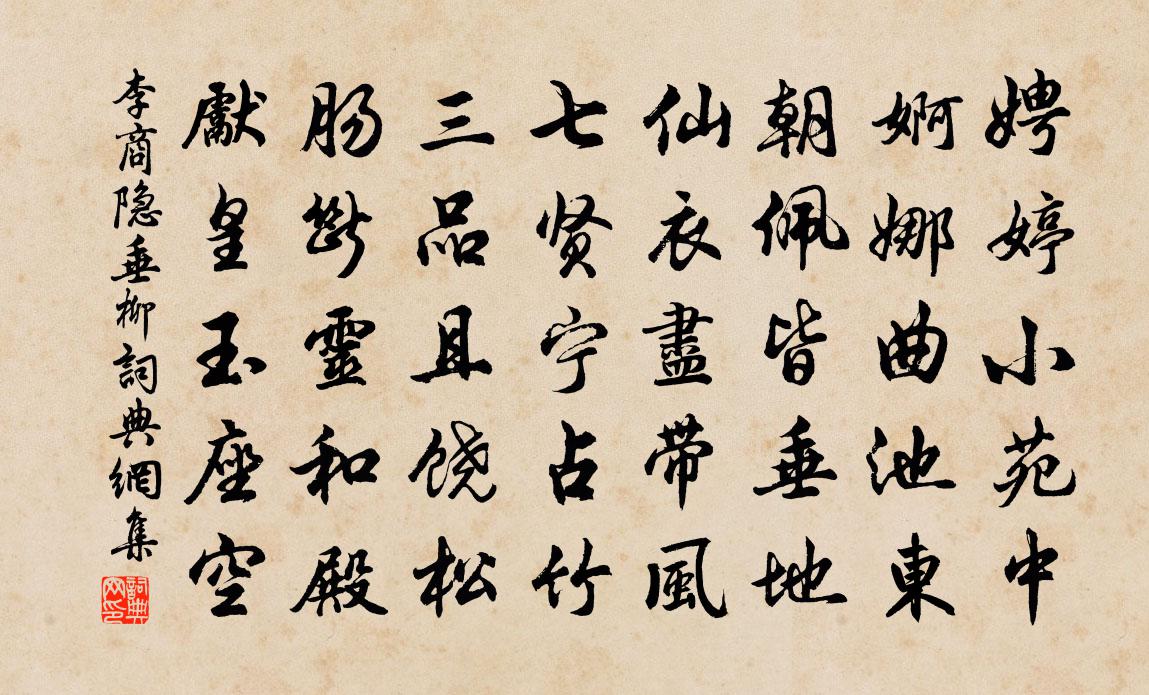 娉婷小苑中
婀娜曲池東
朝佩皆垂地
仙衣盡带風
七贤宁占竹
三品且饶松
肠斷靈和殿
獻皇玉座空
李商隐垂柳詞典網集
詞典网印